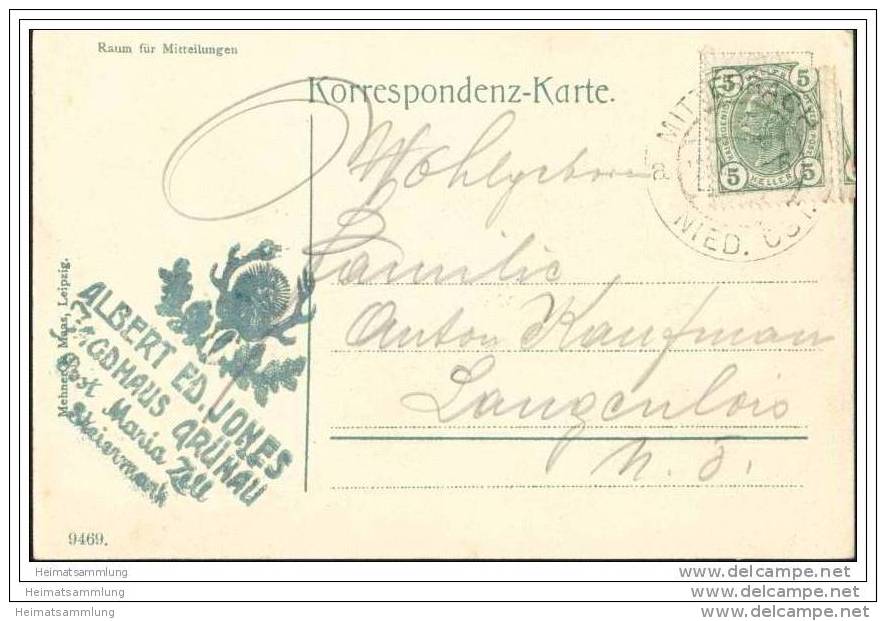 Raum für Mitteilungen
Korrespondenz-Karte.
Wohlgeboren
Familie
Anton Kaufman
Langenlois
N. Ö.
5 5
5 HELLER 5
MITTERBACH
a
NIED. ÖST.
Mehner & Maas, Leipzig.
ALBERT ED. JONES
JAGDHAUS GRÜNAU
Post Maria Zell
Steiermark
9469.
Heimatsammlung
Heimatsammlung
Heimatsammlung
www.delcampe.net
www.delcampe.net
www.delcampe.net